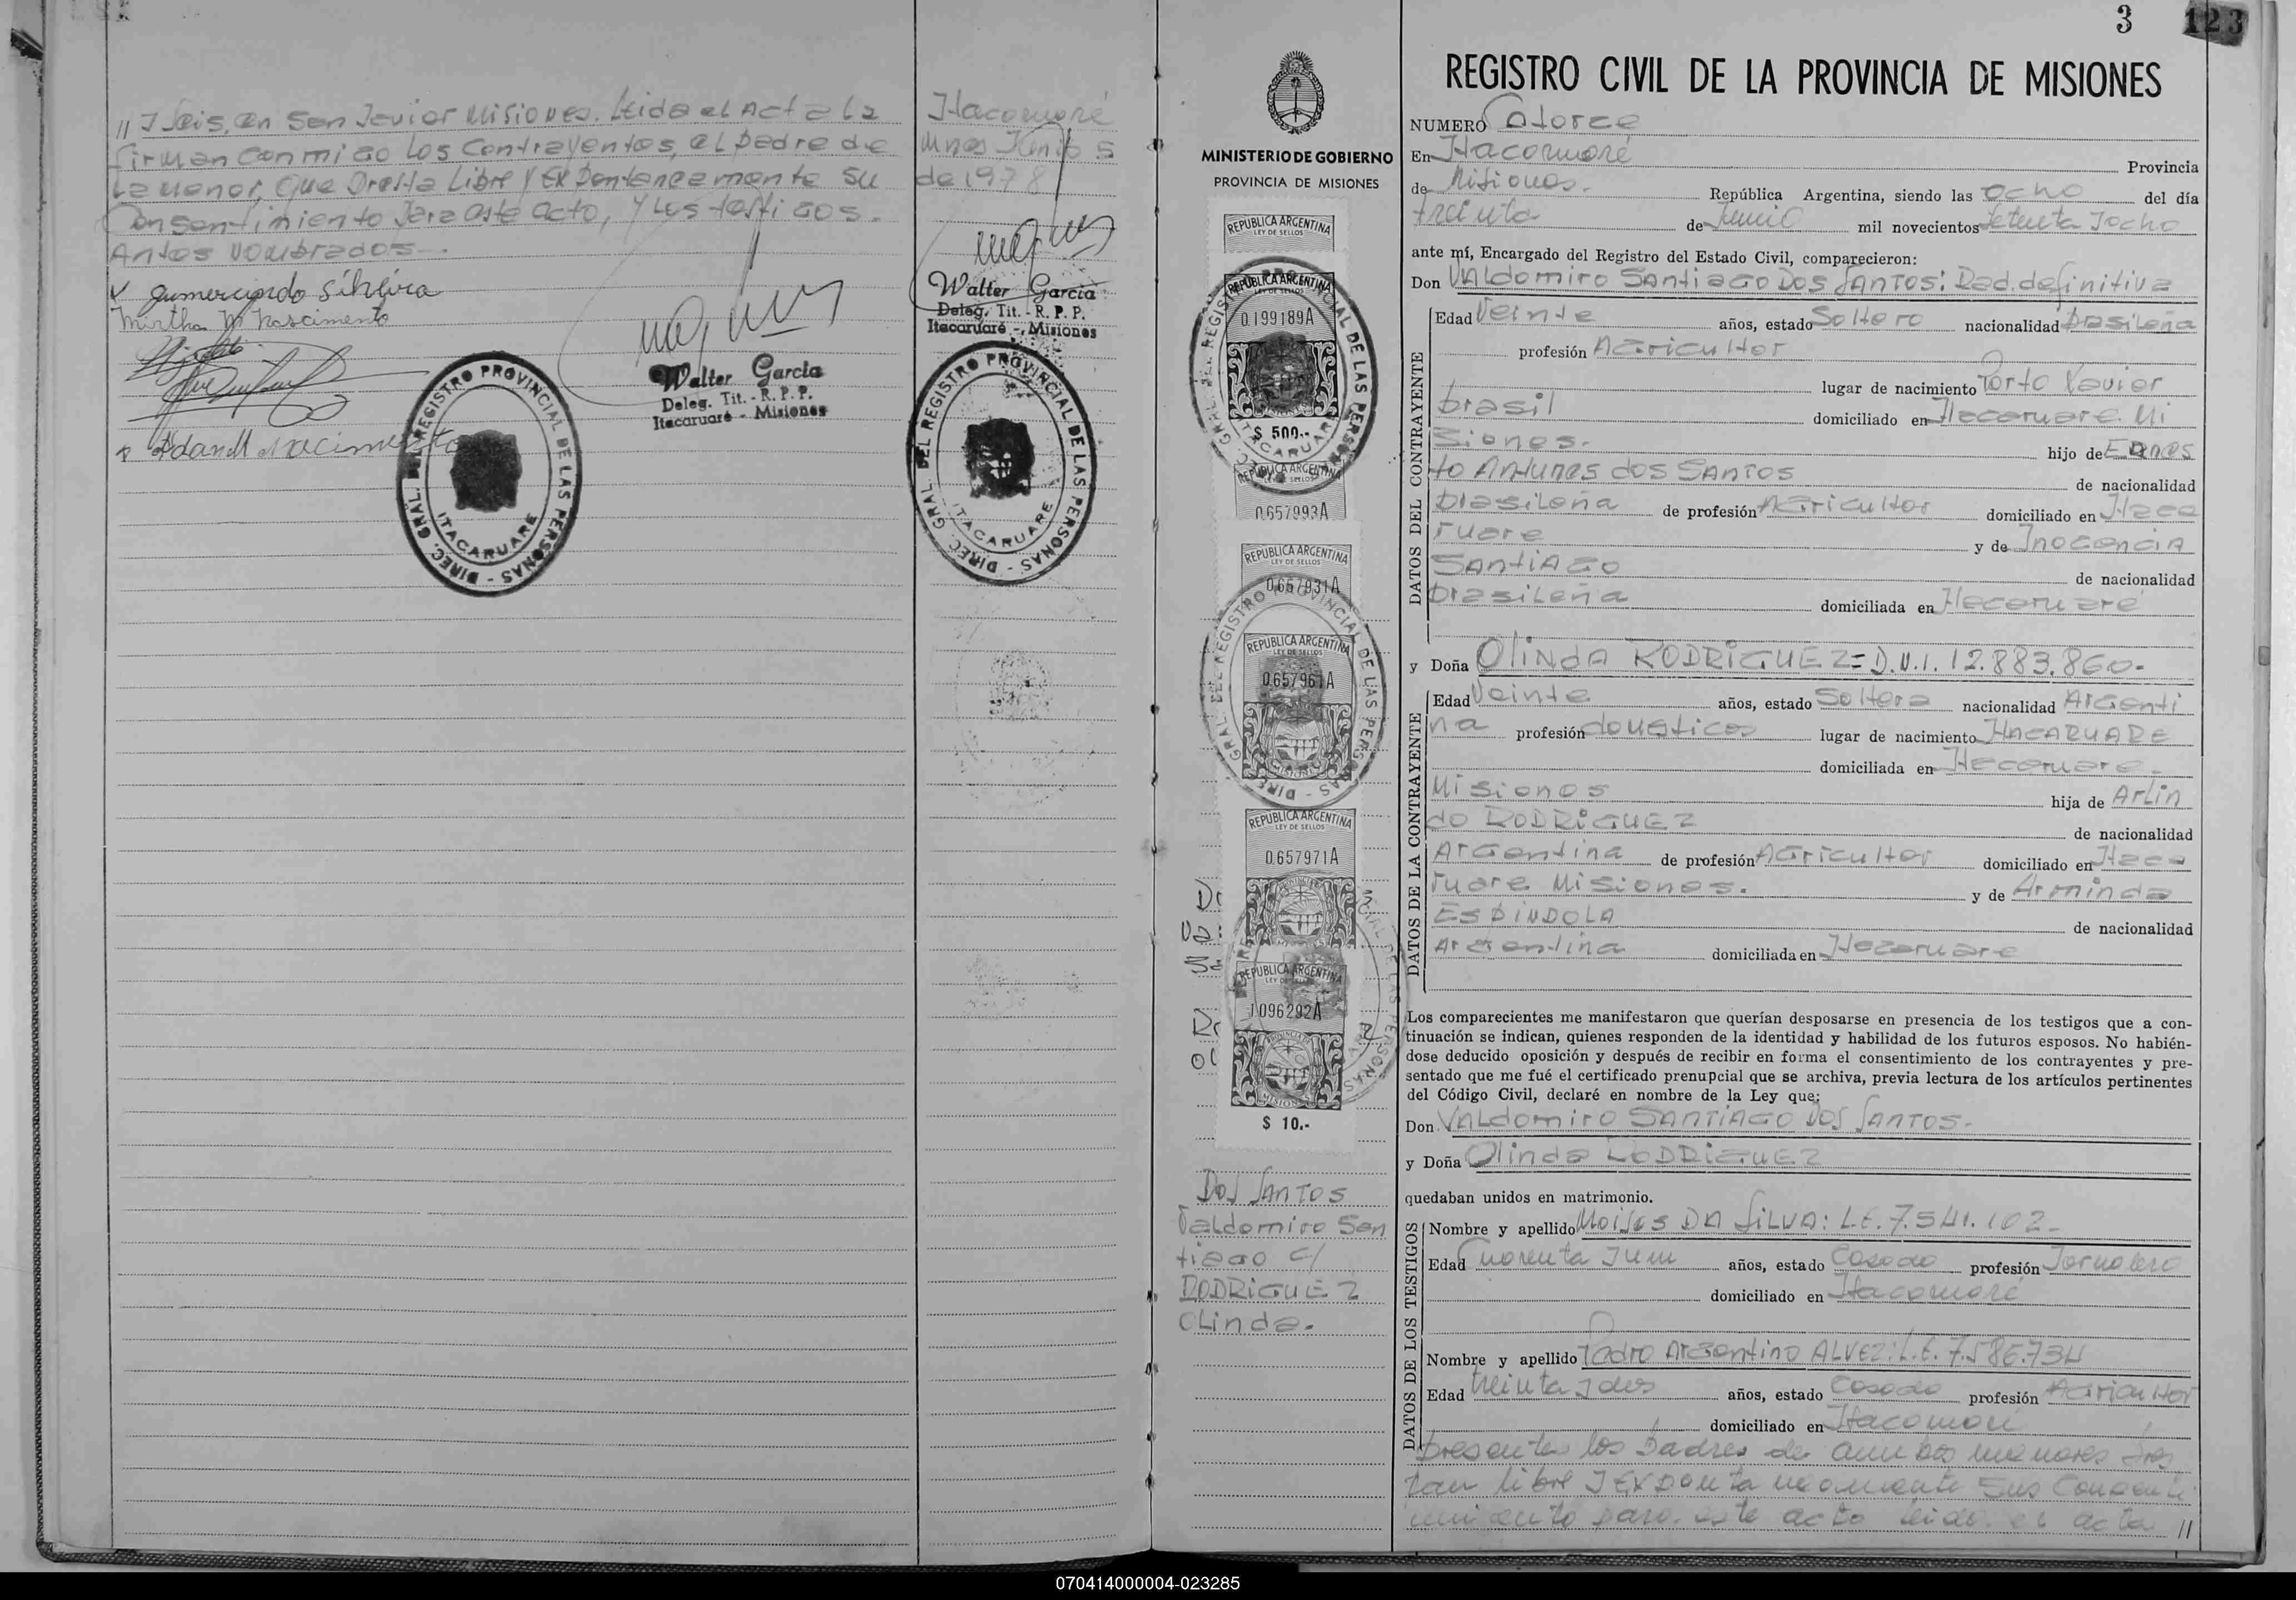 // y seis, en San Javier Misiones. Leida el Acta la
firman conmigo los Contrayentes, el padre de
la menor, que Presta Libre y Expontaneamente su
Consentimiento para este acto, y los testigos.
Antes nombrados.-
Gumercindo Silveira
Mirtha M Nascimento
Adan M Nacimiento
Walter Garcia
Deleg. Tit. - R. P. P.
Itacaruaré - Misiones
DIREC. GRAL. DEL REGISTRO PROVINCIAL DE LAS PERSONAS -
ITACARUARE
Itacaruaré
Mnes Junio 5
de 1978
Walter Garcia
Deleg. Tit. - R. P. P.
Itacaruaré - Misiones
DIREC. GRAL. DEL REGISTRO PROVINCIAL DE LAS PERSONAS -
ITACARUARE
MINISTERIO DE GOBIERNO
PROVINCIA DE MISIONES
REPUBLICA ARGENTINA
LEY DE SELLOS
REPUBLICA ARGENTINA
LEY DE SELLOS
0.199189A
$ 500.-
ITACARUARE
REPUBLICA ARGENTINA
LEY DE SELLOS
0.657993A
REPUBLICA ARGENTINA
LEY DE SELLOS
0.657931A
REPUBLICA ARGENTINA
LEY DE SELLOS
0.657961A
REPUBLICA ARGENTINA
LEY DE SELLOS
0.657971A
REPUBLICA ARGENTINA
LEY DE SELLOS
1.096292A
MISIONES
$ 10.-
DOS SANTOS
Valdomiro San
tiago c/
RODRIGUEZ
OLinda.
3
123
REGISTRO CIVIL DE LA PROVINCIA DE MISIONES
NUMERO Catorce
En Itacaruaré Provincia
de Misiones. República Argentina, siendo las ocho del día
treinta de Junio mil novecientos setenta y ocho
ante mí, Encargado del Registro del Estado Civil, comparecieron:
Don VALdomiro SAntiAGO DOS SANTOS: Rad. definitiva
DATOS DEL CONTRAYENTE
Edad Veinte años, estado Soltero nacionalidad brasileña
profesión Agricultor
lugar de nacimiento Porto Xavier
brasil domiciliado en Itacaruare Mi
siones. hijo de Ernes
to Antunes dos SAntos de nacionalidad
brasileña de profesión Agricultor domiciliado en Itaca
ruare y de InocenciA
SAntiAGO de nacionalidad
brasileña domiciliada en Itacaruaré
y Doña OlindA RODRIGUEZ= D.N.I. 12.883.860-
DATOS DE LA CONTRAYENTE
Edad Veinte años, estado Soltera nacionalidad Argenti
na profesión domesticos lugar de nacimiento ITACARUARE
domiciliada en Itacaruare-
Misiones hija de Arlin
do RODRIGUEZ de nacionalidad
Argentina de profesión Agricultor domiciliado en Itaca
ruare Misiones. y de Arminda
ESPINDOLA de nacionalidad
Argentina domiciliada en Itacaruare
Los comparecientes me manifestaron que querían desposarse en presencia de los testigos que a con-
tinuación se indican, quienes responden de la identidad y habilidad de los futuros esposos. No habién-
dose deducido oposición y después de recibir en forma el consentimiento de los contrayentes y pre-
sentado que me fué el certificado prenupcial que se archiva, previa lectura de los artículos pertinentes
del Código Civil, declaré en nombre de la Ley que:
Don VALdomiro SANTIAGO DOS SANTOS.
y Doña Olinda RODRIGUEZ
quedaban unidos en matrimonio.
DATOS DE LOS TESTIGOS
Nombre y apellido Moises DA SiLVA: L.E. 7.541.102-
Edad Cuarenta y un años, estado Casado profesión Jornalero
domiciliado en Itacaruaré
Nombre y apellido Pedro Argentino ALVEZ: L.E. 7.586.734
Edad treinta y dos años, estado Casado profesión Agricultor
domiciliado en Itacaruaré
presentes los padres de ambos menores pres
tan libre y Expontaneamente sus Consenti
miento para este acto leida el acta //
070414000004-023285